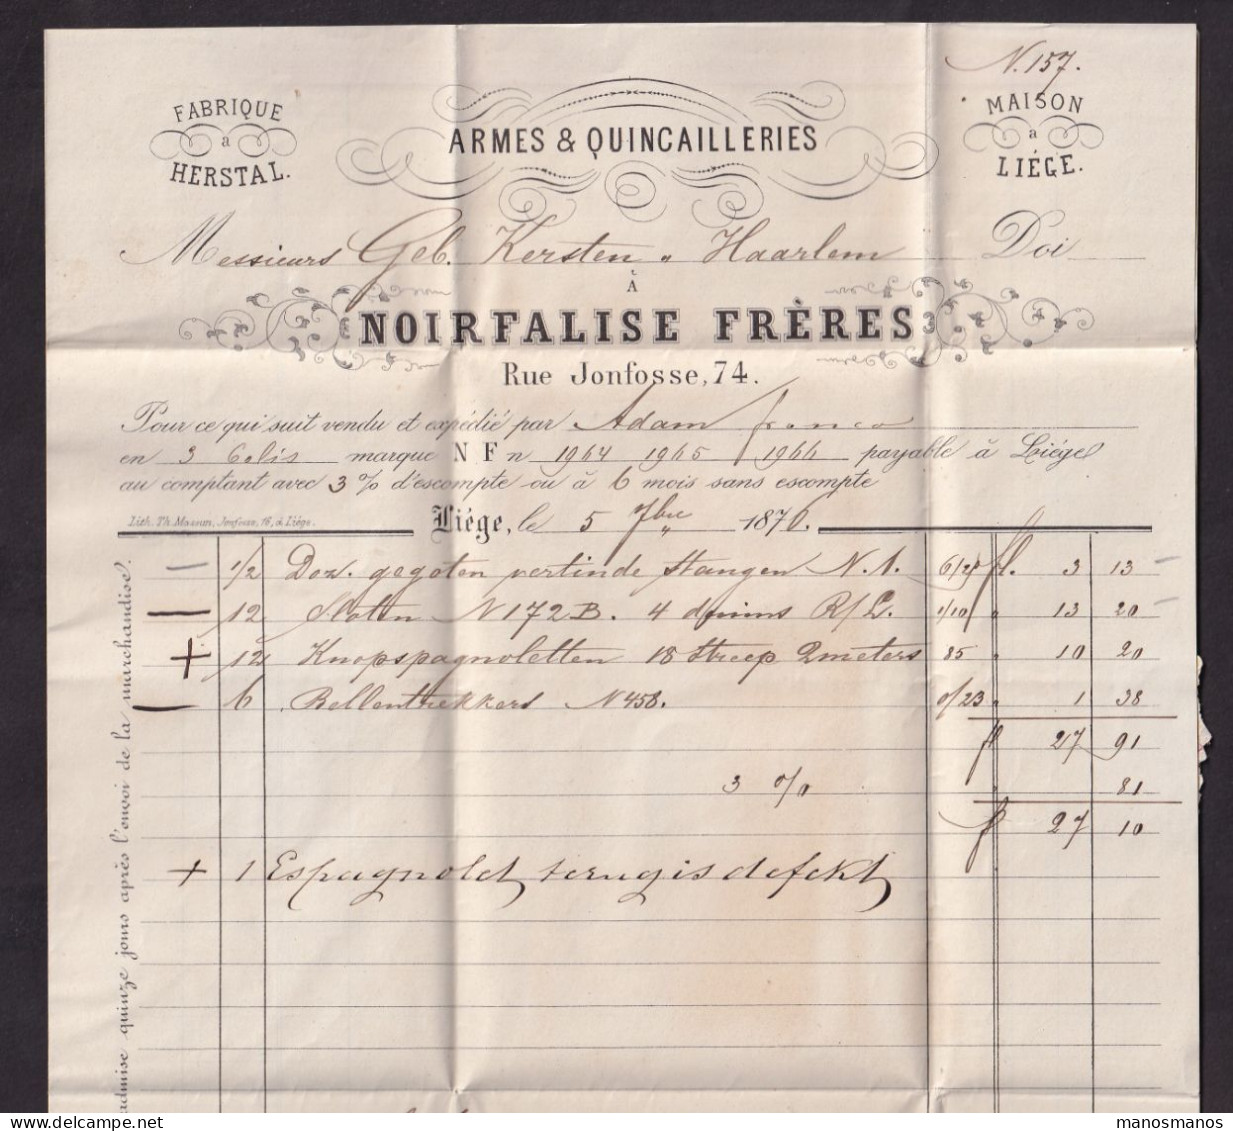 N. 157.
FABRIQUE
a
HERSTAL.
ARMES & QUINCAILLERIES
MAISON
a
LIÉGE.
Messieurs Geb. Kersten " Haarlem Doi
À
NOIRFALISE FRÈRES
Rue Jonfosse, 74.
Pour ce qui suit vendu et expédié par Adam franco
en 3 Colis marque N F n 1964 1965 1966 payable à Liége
au comptant avec 3 % d'escompte ou à 6 mois sans escompte
Lith. Th. Massun, Jonfosse, 16, à Liége.
Liége, le 5 7bre 1876.
— 1/2 Doz. gegoten vertinde Stangen N. 1. 6/25 fl. 3 13 —
— 12 Sloten N 172 B. 4 duims R/L. 1/10 " 13 20 —
+ 12 Knopspagnoletten 18 Streep 2 meters 85 " 10 20
— 6 Bellentrekkers N 458. 0/23 " 1 38
fl 27 91
3 % " 81
fl 27 10
+ 1 Espagnolet terug is defekt
admise quinze jours après l'envoi de la marchandise.
manosmanos